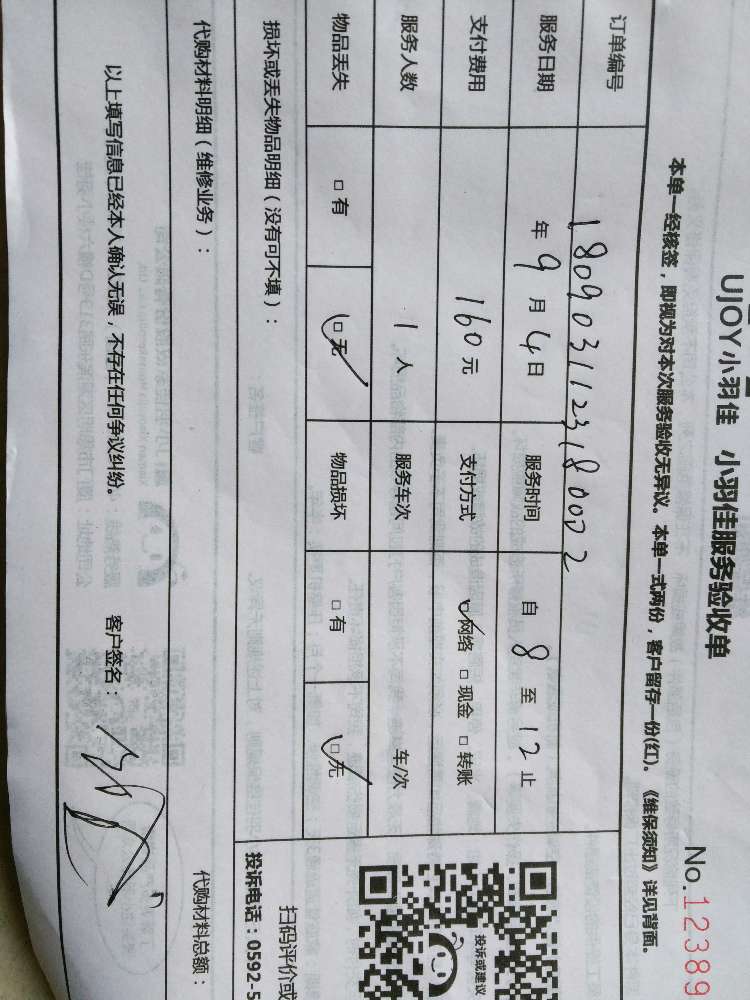 UJOY小羽佳 小羽佳服务验收单
No.12389
本单一经核签，即视为对本次服务验收无异议。本单一式两份，客户留存一份(红)。《维保须知》详见背面。
订单编号 1809031123180002
服务日期 年9月4日 服务时间 自8至12止
支付费用 160元 支付方式 ☑网络 □现金 □转账
服务人数 1人 服务车次 车/次
物品丢失 □有 ☑无 物品损坏 □有 ☑无
损坏或丢失物品明细（没有可不填）：
代购材料明细（维修业务）：
代购材料总额：
以上填写信息已经本人确认无误，不存在任何争议纠纷。
客户签名：
投诉或建议
扫码评价或
投诉电话：0592-5